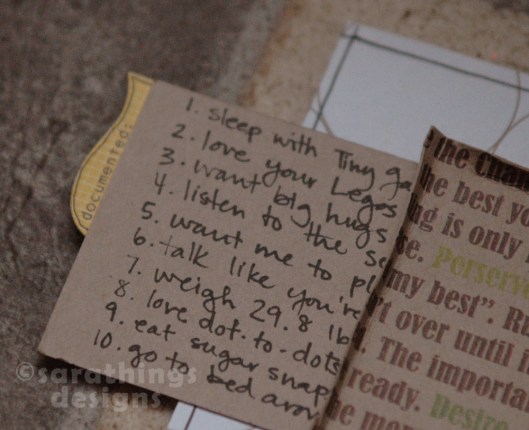 documented:
1. sleep with Tiny ga
2. love your Legos
3. want big hugs
4. listen to the se
5. want me to pl
6. talk like you're
7. weigh 29.8 lb
8. love dot-to-dots
9. eat sugar snap
10. go to bed arou
the Cha
he best yo
ng is only
se. Perserve
my best". R
't over until
. The importa
ready. Desire
be me
©sarathings
designs